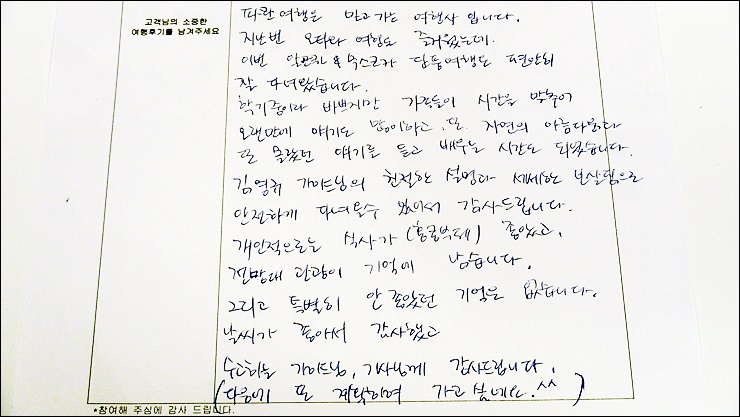 고객님의 소중한
여행후기를 남겨주세요
파란여행은 믿고가는 여행사 입니다.
지난번 오타와 여행도 즐거웠는데
이번 알곤퀸 & 무스코카 단풍여행도 편안히
잘 다녀왔습니다.
학기중이라 바쁘지만 가족들이 시간을 맞추어
오랜만에 얘기도 많이하고, 또 자연의 아름다움과
또 몰랐던 얘기를 듣고 배우는 시간도 되었습니다.
김영규 가이드님의 친절한 설명과 세세한 보살핌으로
안전하게 다녀올수 있어서 감사드립니다.
개인적으로는 식사가 (몽골부페) 좋았고,
전망대 관광이 기억에 남습니다.
그리고 특별히 안좋았던 기억은 없습니다.
날씨가 좋아서 감사했고
수고하는 가이드님, 기사님께 감사드립니다.
(다음에 또 계획하여 가고 싶네요.^^)
*참여해 주심에 감사 드립니다.